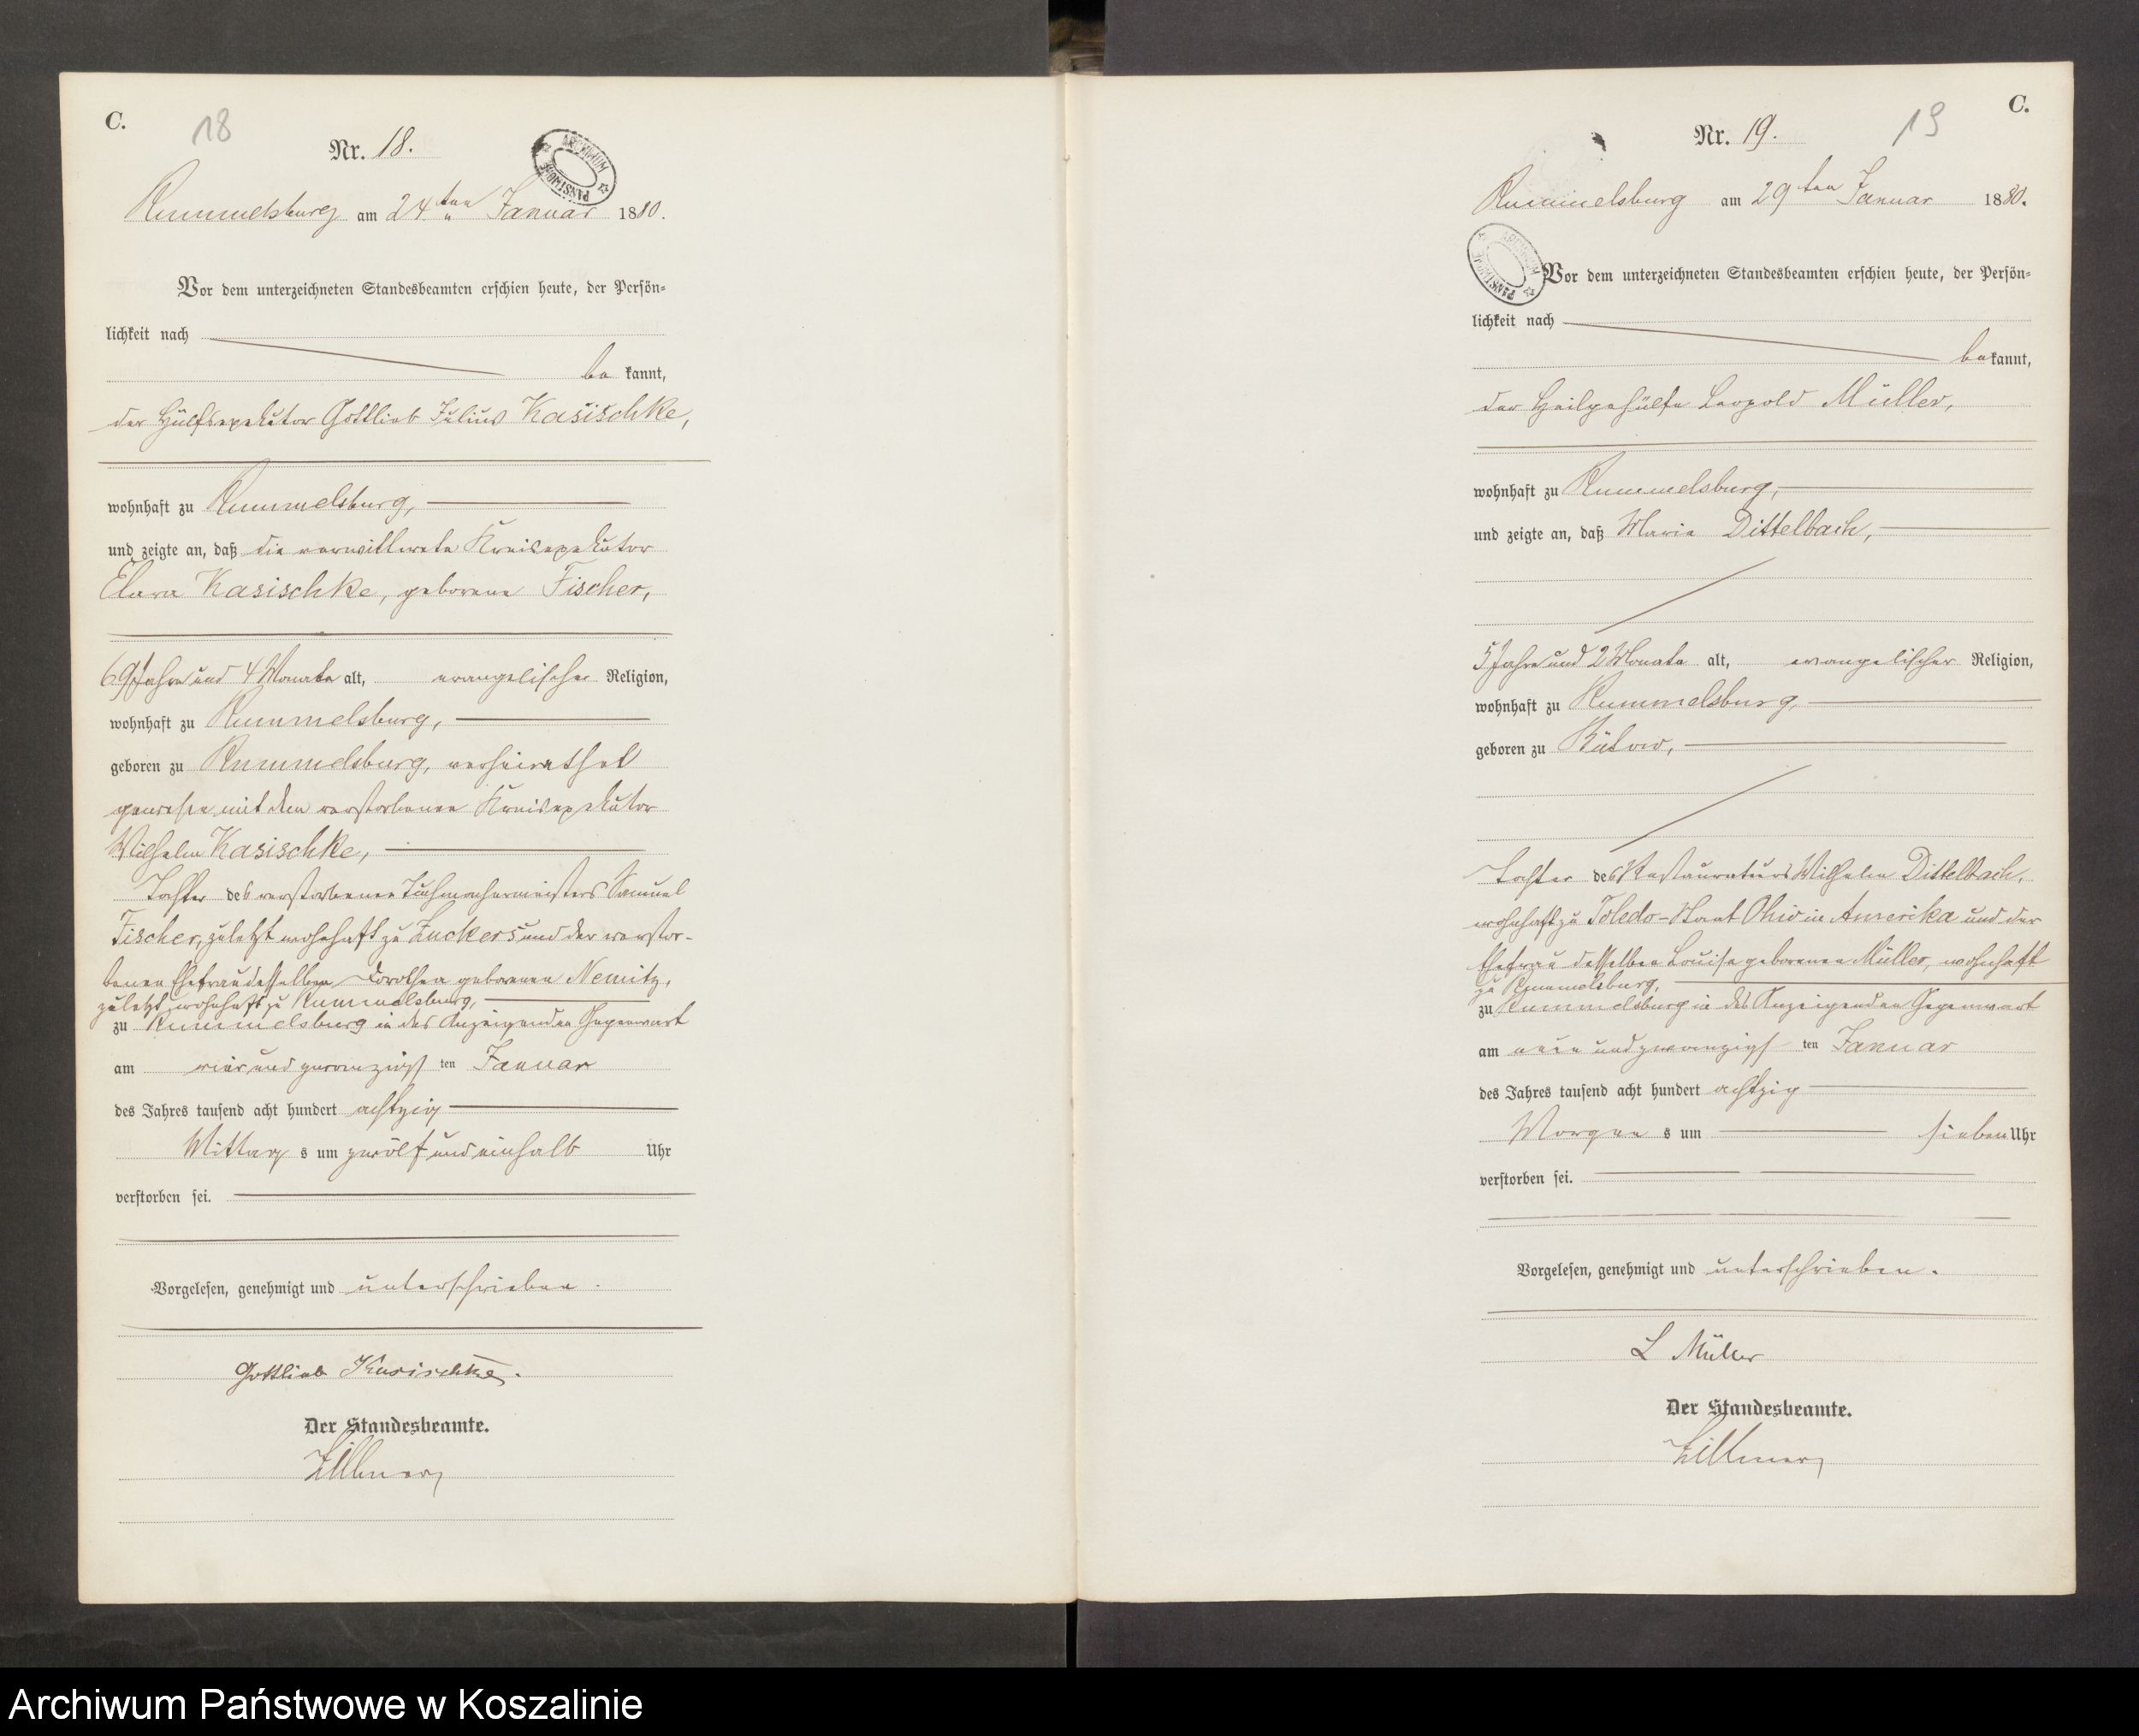 C.
18
Nr. 18.
ARCHIWUM PAŃSTWOWE
Rummelsburg am 24ten Januar 1880.
Vor dem unterzeichneten Standesbeamten erschien heute, der Persön-
lichkeit nach
be kannt,
der Hülfsexekutor Gottlieb Julius Kasischke,
wohnhaft zu Rummelsburg,
und zeigte an, daß die verwittwete Kreisexekutor
Clara Kasischke, geborene Fischer,
69 Jahre und 4 Monate alt, evangelischer Religion,
wohnhaft zu Rummelsburg,
geboren zu Rummelsburg, verheirathet
gewesen mit dem verstorbenen Kreisexekutor
Wilhelm Kasischke,
Tochter des verstorbenen Tuchmachermeisters Samuel
Fischer, zuletzt wohnhaft zu Zuckers und der verstor-
benen Ehefrau desselben Dorothea geborenen Nemitz,
zuletzt wohnhaft zu Rummelsburg,
zu Rummelsburg in des Anzeigenden Gegenwart
am vier und zwanzigs ten Januar
des Jahres tausend acht hundert achtzig
Mittag s um zwölf und einhalb Uhr
verstorben sei.
Vorgelesen, genehmigt und unterschrieben.
Gottlieb Kasischke.
Der Standesbeamte.
Zillmer
C.
19
Nr. 19.
Rummelsburg am 29ten Januar 1880.
ARCHIWUM PAŃSTWOWE
Vor dem unterzeichneten Standesbeamten erschien heute, der Persön-
lichkeit nach
bekannt,
der Heilgehülfe Leopold Müller,
wohnhaft zu Rummelsburg,
und zeigte an, daß Maria Dittelbach,
5 Jahre und 2 Monate alt, evangelischer Religion,
wohnhaft zu Rummelsburg,
geboren zu Bütow,
Tochter des Restaurateurs Wilhelm Dittelbach,
wohnhaft zu Toledo-Staat Ohio in Amerika und der
Ehefrau desselben Louise geborenen Müller, wohnhaft
zu Rummelsburg,
zu Rummelsburg in des Anzeigenden Gegenwart
am neun und zwanzigs ten Januar
des Jahres tausend acht hundert achtzig
Morgen s um sieben Uhr
verstorben sei.
Vorgelesen, genehmigt und unterschrieben.
L Müller
Der Standesbeamte.
Zillmer
Archiwum Państwowe w Koszalinie